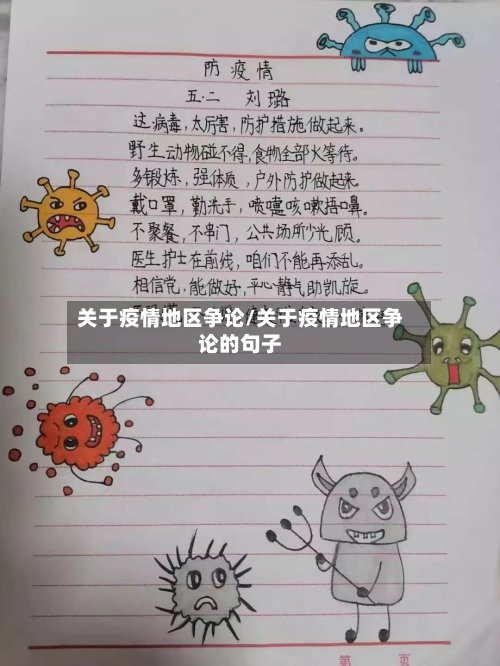 防疫情
五.二 刘璐
这病毒,太厉害,防护措施做起来。
野生动物碰不得,食物全部火等待。
多锻炼,强体质,户外防护做起来。
戴口罩,勤洗手,喷嚏咳嗽捂口鼻。
不聚餐,不串门,公共场所少光顾。
医生护士在前线,咱们不能再添乱。
相信党,能做好,平心静气助凯旋。
关于疫情地区争论/关于疫情地区争
论的句子
第 页